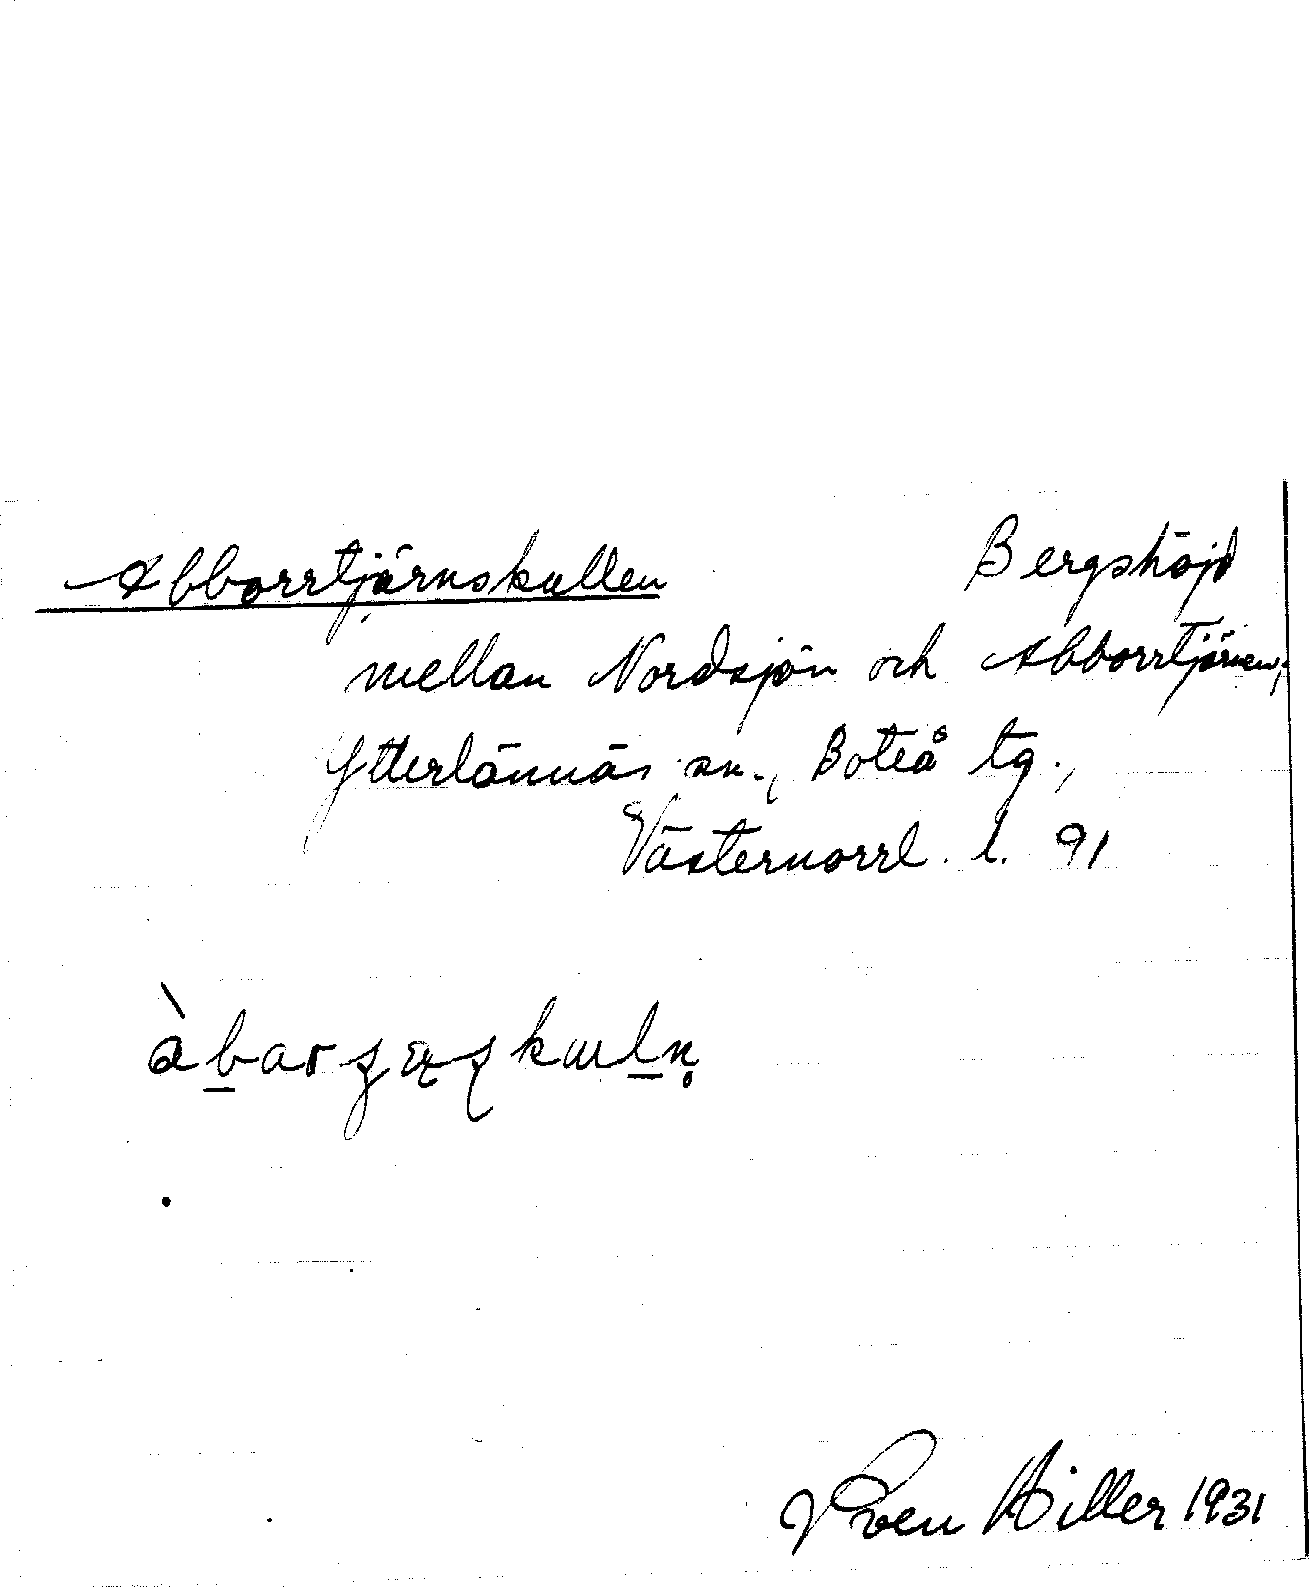 Abborrtjärnskullen Bergshöjd
mellan Nordsjön och Abborrtjärnen,
Ytterlännäs sn., Boteå tg.,
Västernorrl. l. 91
Sven Hiller 1931